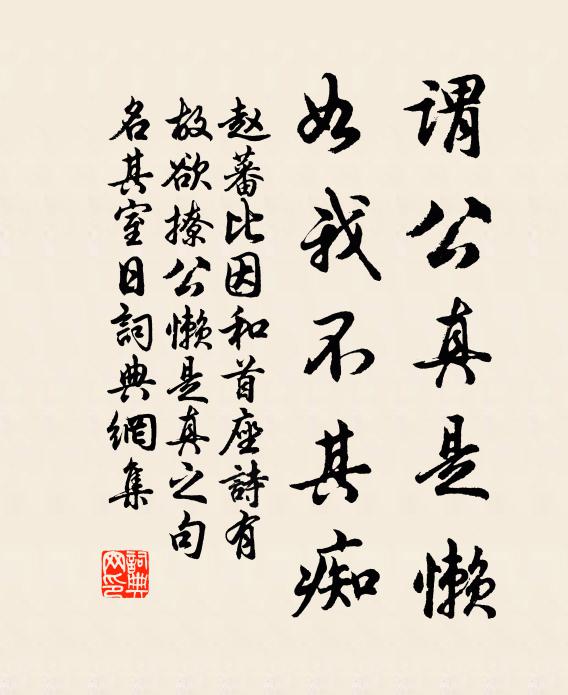 謂公真是懶
如我不其痴
赵蕃比因和首座詩有
故欲撩公懶是真之句
名其室日詞典網集
詞典
网印